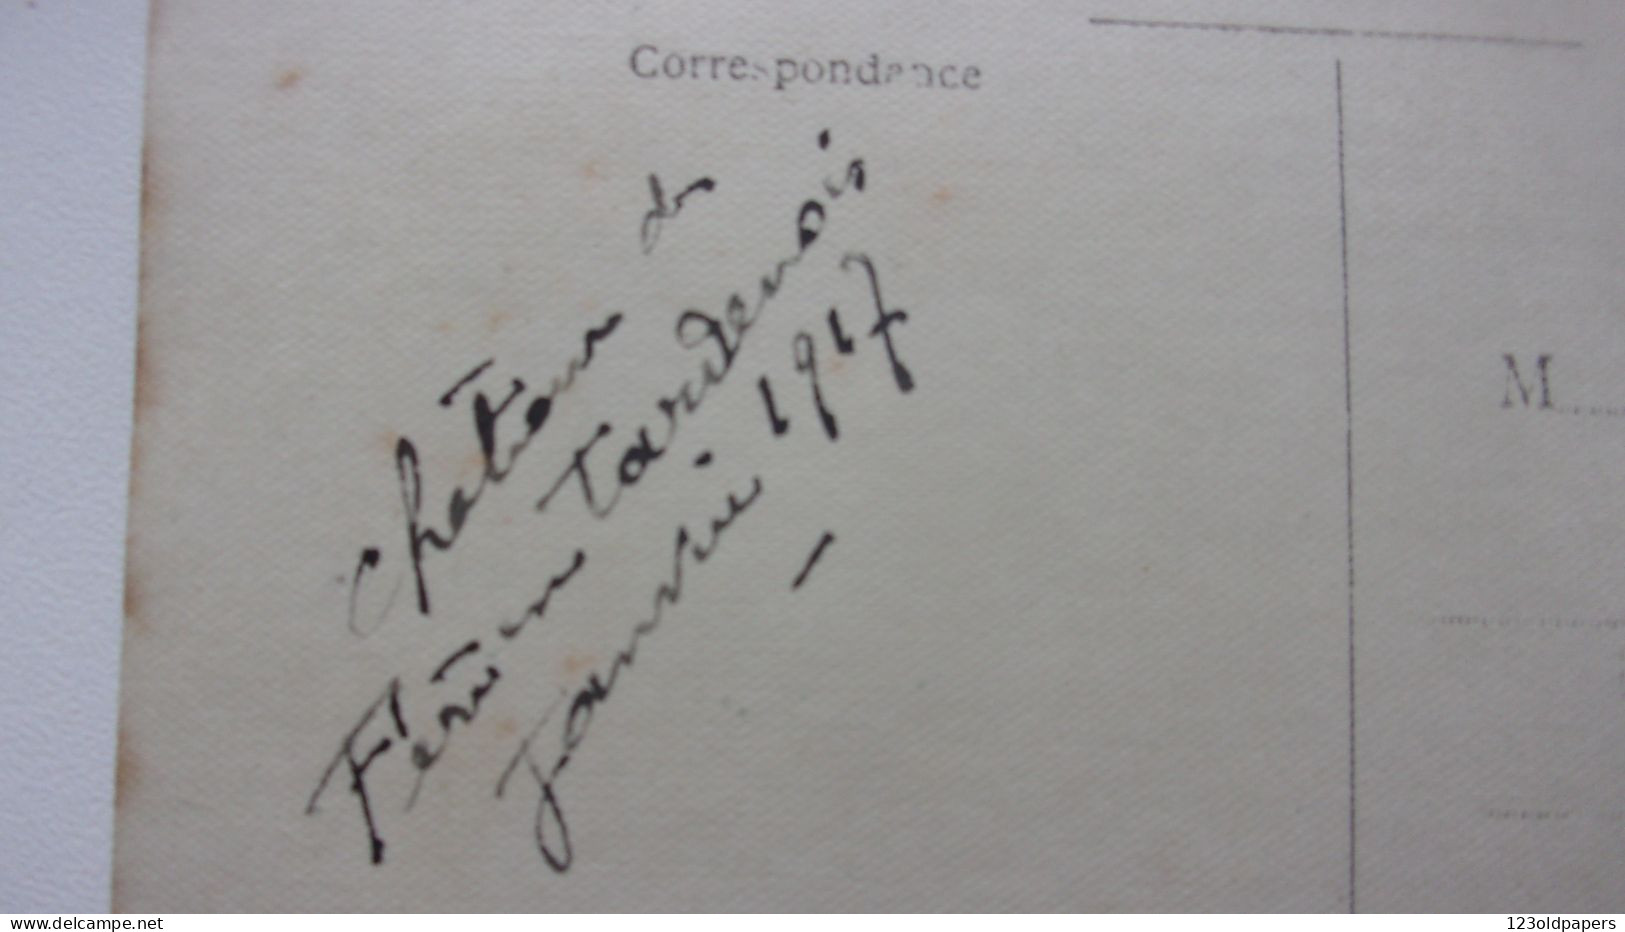 Correspondance
Chateau de
Fère en Tardenois
Janvier 1917
M
delcampe.net
123oldpapers